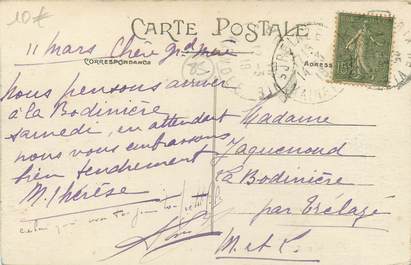 10€
CARTE POSTALE
CORRESPONDANCE
ADRESSE
11 mars Chère Gd mère
Nous pensons arriver
à la Bodinière
samedi, en attendant
nous vous embrassons
bien tendrement
M. Thérèse
Madame
Jaguenoud
La Bodinière
par Erclagé
M. et L.